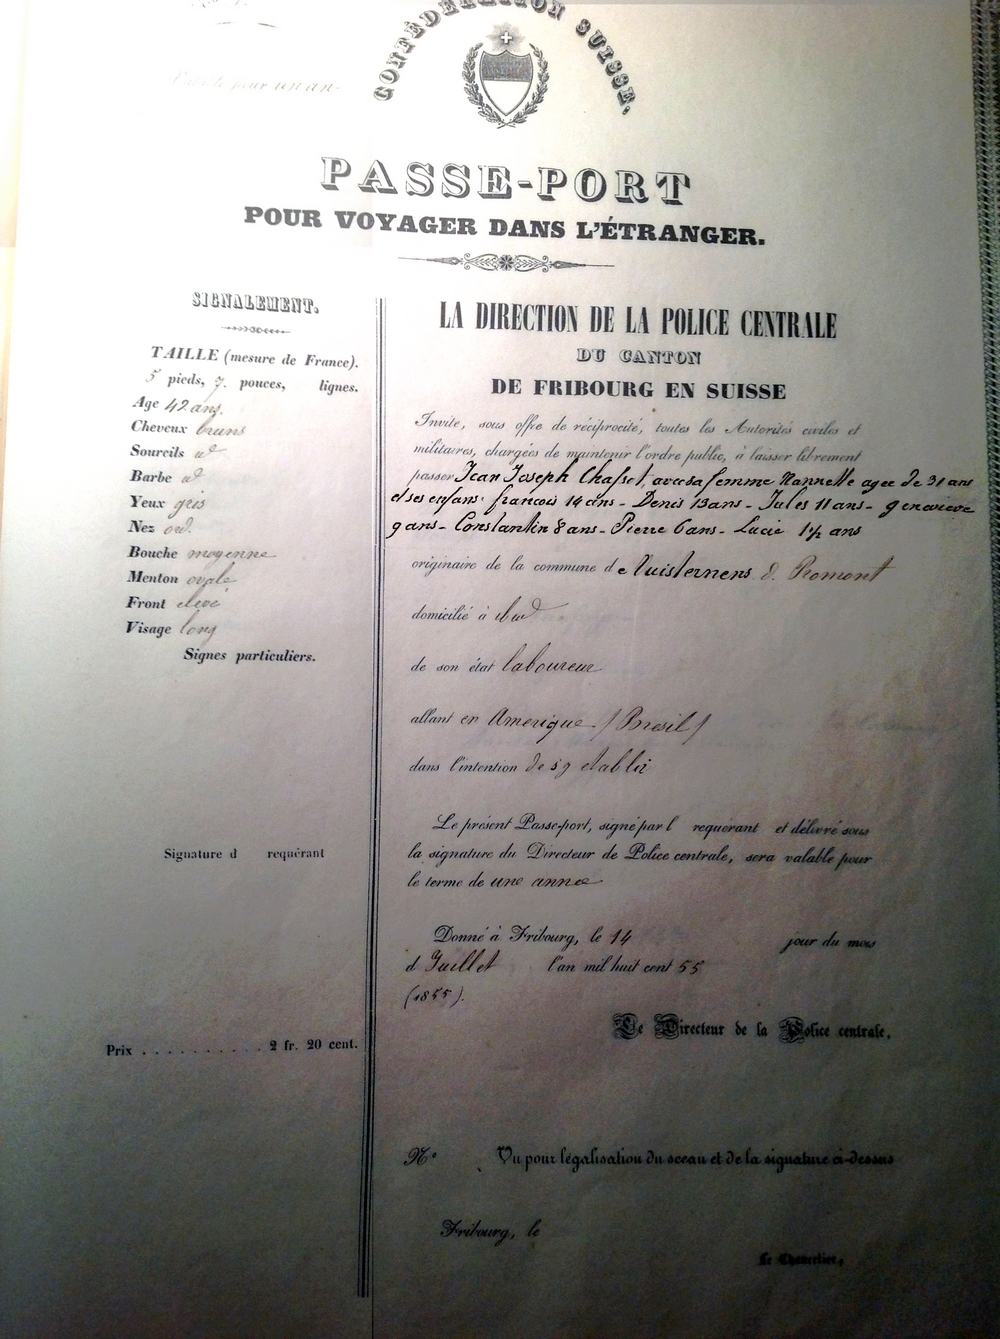 CONFÉDÉRATION SUISSE,
pour un an
PASSE-PORT
POUR VOYAGER DANS L'ÉTRANGER.
SIGNALEMENT.
TAILLE (mesure de France).
5 pieds, 7 pouces, lignes.
Age 42 ans.
Cheveux bruns
Sourcils id
Barbe id
Yeux gris
Nez ord.
Bouche moyenne
Menton ovale
Front elevé
Visage long
Signes particuliers.
Signature d requérant
Prix . . . . . . . . . . 2 fr. 20 cent.
LA DIRECTION DE LA POLICE CENTRALE
DU CANTON
DE FRIBOURG EN SUISSE
Invite, sous offre de réciprocité, toutes les Autorités civiles et
militaires, chargées de maintenir l'ordre public, à laisser librement
passer Jean Joseph Chasset, avec sa femme Nannette agee de 31 ans
et ses enfans: françois 14 ans - Denis 13 ans - Jules 11 ans - genevieve
9 ans - Constantin 8 ans - Pierre 6 ans - Lucie 1½ ans
originaire de la commune de Vuisternens d. Romont
domicilié à ibid
de son état laboureur
allant en Amerique / Bresil /
dans l'intention de s'y etablir
Le présent Passe-port, signé par l requérant et délivré sous
la signature du Directeur de Police centrale, sera valable pour
le terme de une annee
Donné à Fribourg, le 14 jour du mois
d Juillet l'an mil huit cent 55
(1855).
Le Directeur de la Police centrale.
N° Vu pour légalisation du sceau et de la signature ci-dessus
Fribourg, le
Le Chancelier,